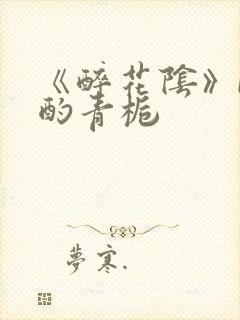 《醉花陰》
酌青栀
夢寒.